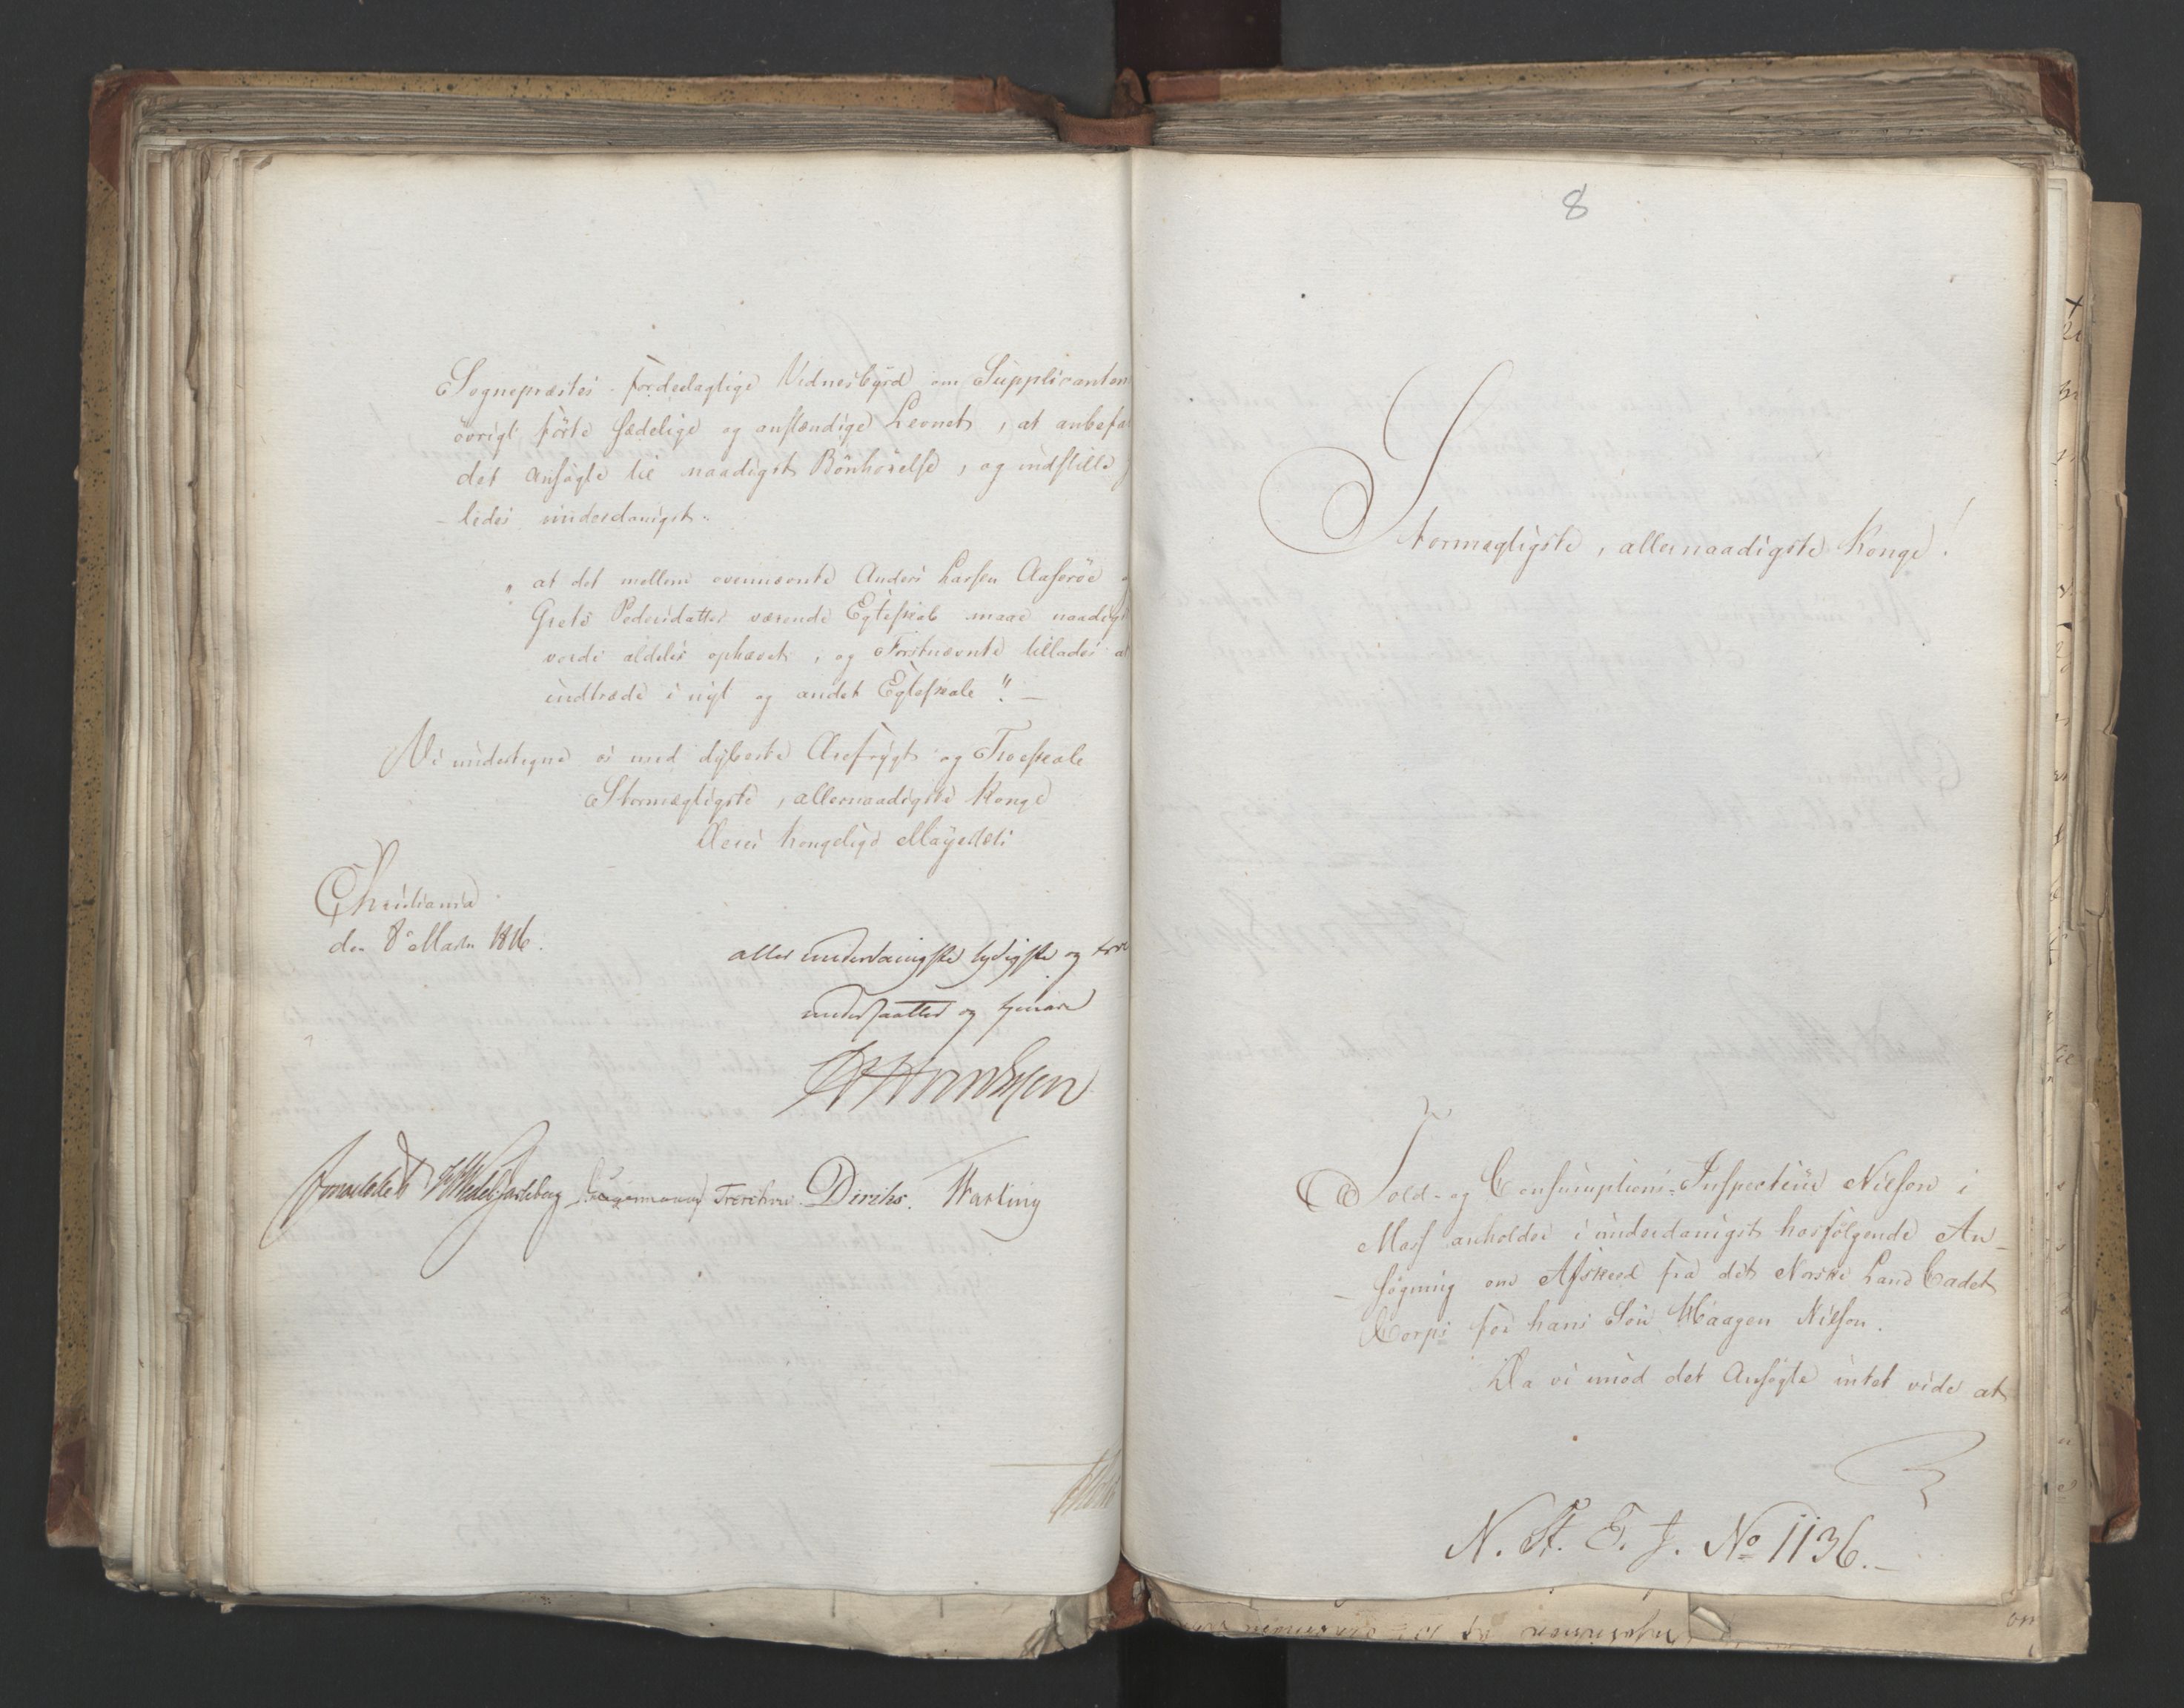 Sognepræstes fordeelagtige Vidnesbyrd om Supplicanten
övrigt förte sædelige og anstændige Levnet, at anbefa
det Ansögte til naadigst Bönhörelse, og indstille
ledes underdanigst:
"at det mellem ovennævnte Anders Larsen Aaseröe
Grete Pedersdatter værende Egteskab maae naadigst
vorde aldeles ophævet, og Förstnævnte tillades at
indtræde i nyt og andet Egteskab". —
Vi undertegne os med dybeste Ærefrygt og Troeskab
Stormægtigste, allernaadigste Konge
Deres Kongelige Mayestæts
Christiania
den 8de Marts 1816.
aller underdanigste lydigste og troe
undersaatter og tjenere
Sommerhielm Wedel Jarlsberg Treschow Diriks. Hartling
8
Stormægtigste, allernaadigste Konge!
Told- og Consumptions-Inspecteur Nielsen i
Moss anholder i underdanigst hosfölgende An-
sögning om Afskeed fra det Norske Land Cadet
Corps for hans Sön Haagen Nielsen.
Da vi imod det Ansögte intet vide at
N. St. E. J. No 1136. —